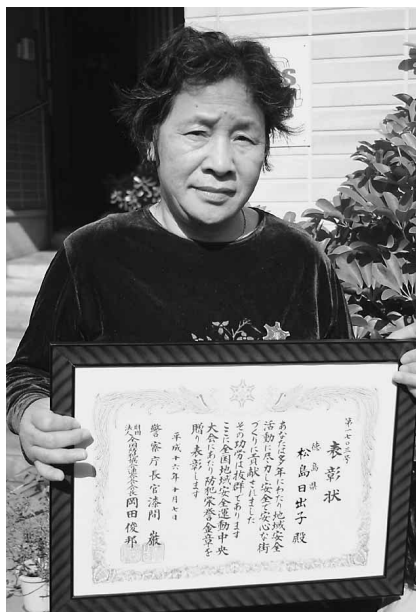 第一七〇三号
表彰状
徳島県
松島日出子 殿
あなたは多年にわたり地域安全
活動に尽力し安全で安心な街
づくりに貢献されました
その功労は抜群であります
ここに全国地域安全運動中央
大会にあたり防犯栄誉金章を
贈り表彰します
平成十六年十月七日
警察庁長官 漆間 巌
財団法人 全国防犯協会連合会会長 岡田俊邦